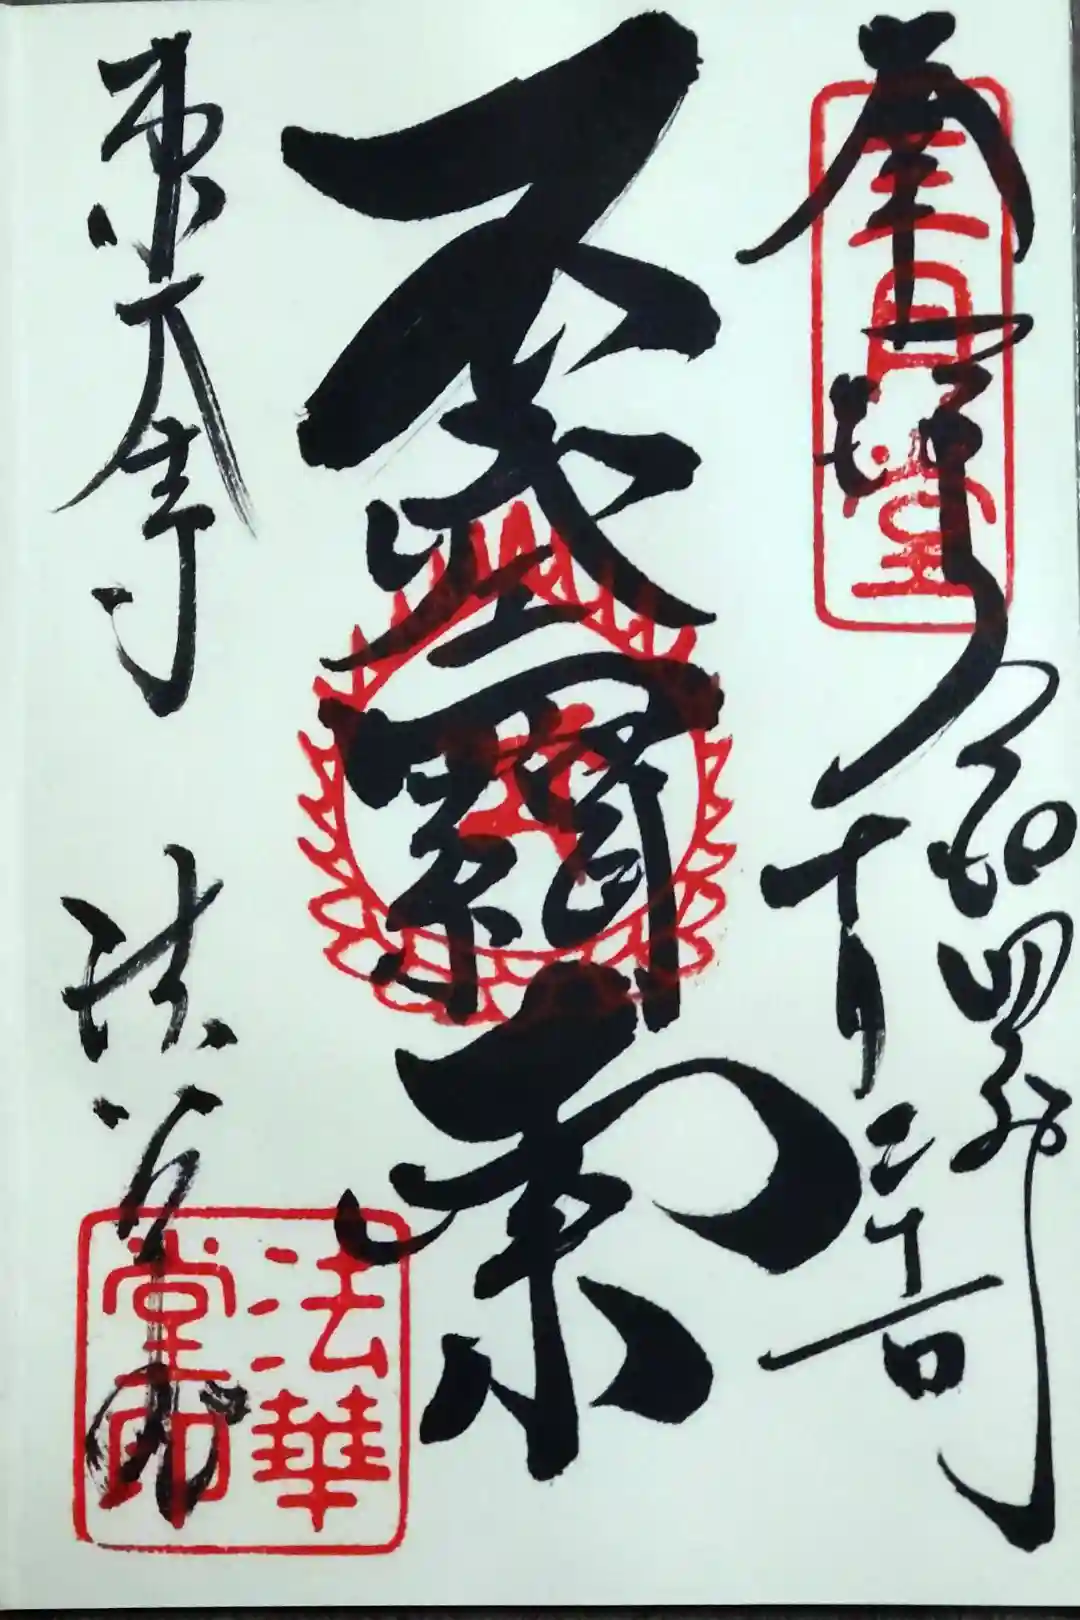 奉拝
令和四年
十月二十一日
三月堂
不空羂索
東大寺 法華堂
法華堂印